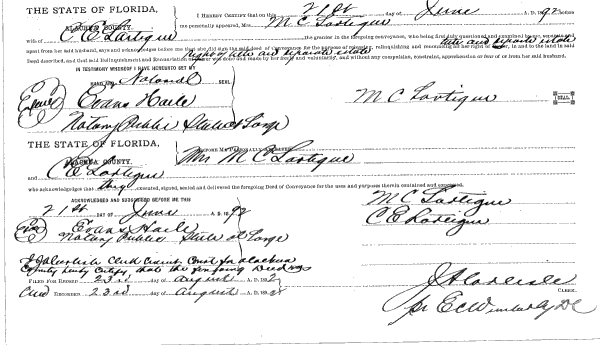 THE STATE OF FLORIDA,
ALACHUA COUNTY.
I HEREBY CERTIFY that on this 21st day of June A. D. 1892 before
me personally appeared, Mrs. M C Lartigue
C. E. Lartigue the grantor in the foregoing conveyance, who being first duly questioned and examined
agent from her said husband, says and acknowledges before me that she did sign the said deed of Conveyance for the purpose of relinquishing and renouncing all her right of dower, in and to the land in said
right of title and separate estate
Deed described, and that said Relinquishment and Renunciation of dower was done and made by her freely and voluntarily, and without any compulsion, constraint, apprehension or fear of or from her said husband.
IN TESTIMONY WHEREOF I HAVE HEREUNTO SET MY
HAND AND Notarial SEAL
Evans Haile
M C Lartigue SEAL
Notary Public State at Large
THE STATE OF FLORIDA,
ALACHUA COUNTY.
BEFORE ME PERSONALLY APPEARED
Mrs M C Lartigue
and C E Lartigue
who acknowledges that they executed, signed, sealed and delivered the foregoing Deed of Conveyance for the uses and purposes therein contained and expressed.
ACKNOWLEDGED AND SUBSCRIBED BEFORE ME THIS
M C Lartigue
21st day of June A. D. 1892
C E Lartigue
Evans Haile
Notary Public State at Large
I J A Carlisle Clerk Circuit Court for Alachua
County hereby certify that the foregoing Deed was
FILED FOR RECORD 23rd day of August A. D. 1892
J A Carlisle CLERK.
and RECORDED 23rd day of August A. D. 1892
pr E C Wimberly DC